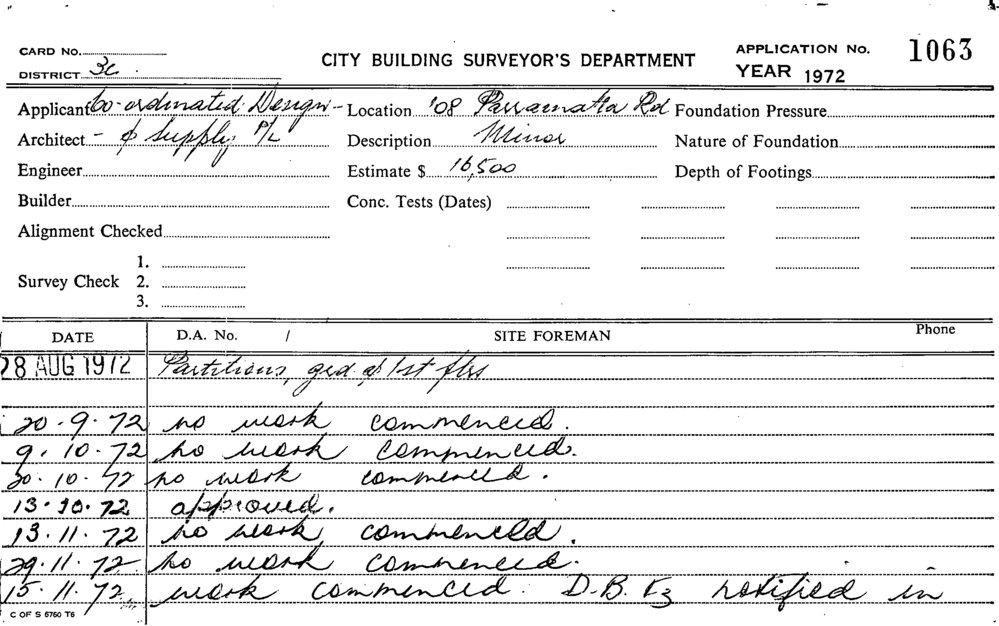 CARD No.
DISTRICT 3c
CITY BUILDING SURVEYOR'S DEPARTMENT
APPLICATION No. 1063
YEAR 1972
Applicant Co-ordinated Design - Location '08 Parramatta Rd Foundation Pressure
Architect - & Supply P/L Description Minor Nature of Foundation
Engineer Estimate $ 16,500 Depth of Footings
Builder Conc. Tests (Dates)
Alignment Checked
Survey Check 1.
2.
3.
DATE D.A. No. / SITE FOREMAN Phone
28 AUG 1972 Partitions, grd & 1st flrs
20.9.72 no work commenced.
9.10.72 no work commenced.
20.10.72 no work commenced.
13.10.72 approved.
13.11.72 no work commenced.
29.11.72 no work commenced.
15.11.72 work commenced. D.B. notified in
C OF S 6760 T6